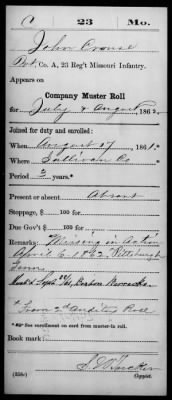 C 23 Mo.
John Crouse
Pvt. Co. A, 23 Reg't Missouri Infantry.
Appears on
Company Muster Roll
for July & August, 1862.
Joined for duty and enrolled:
When August 17, 1861.*
Where Sullivan Co
Period 3 years.*
Present or absent Absent
Stoppage, $ 100 for
Due Gov't $ 100 for
Remarks: Missing in Action
April 6, 1862, Pittsburgh
Tenn
* From 2d Auditors Roll
*See enrollment on card from muster-in roll.
Book mark:
(358c) Copyist.